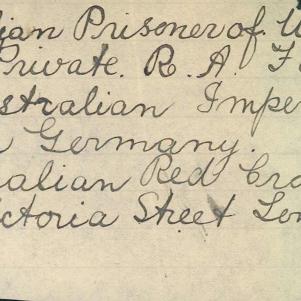 ian Prisoner of W
Private. R. A. F
stralian Impe
Germany.
alian Red Cro
ictoria Street Lon